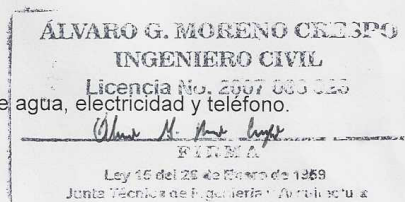 ÁLVARO G. MORENO CRESPO
INGENIERO CIVIL
Licencia No. 2007
agua, electricidad y teléfono.
FIRMA
Ley 15 del 26 de Enero de 1959
Junta Técnica de Ingeniería y Arquitectura